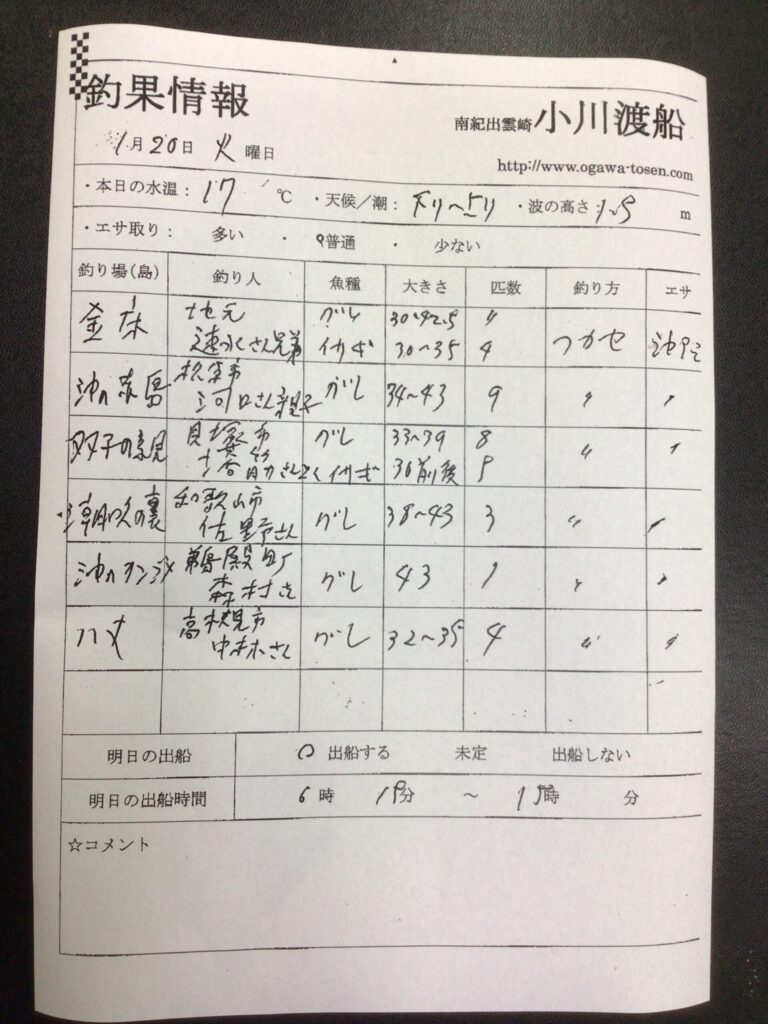 釣果情報
南紀出雲崎 小川渡船
1月20日 火 曜日
http://www.ogawa-tosen.com
・本日の水温： 17 ℃ ・天候／潮： ・波の高さ： 1.5 m
・エサ取り： 多い ・ 普通 ・ 少ない
釣り場（島） 釣り人 魚種 大きさ 匹数 釣り方 エサ
地元 グレ 30~42.5 〃
金床 速水さん兄弟 イガギ 30~35 4 つかせ
松原市
沖の赤島 河口さん親子 グレ 34~43 9 〃 〃
貝塚市 グレ 33~39 8
双子の高見 イガギ 30前後 5 〃 〃
和歌山市
潮吹の裏 佐野さん グレ 38~43 3 〃 〃
鵜殿町
森村さん グレ 43 1 〃 〃
高槻市
ハヤ 中林さん グレ 32~35 4 〃 〃
明日の出船 ○ 出船する 未定 出船しない
明日の出船時間 6 時 15 分 ～ 15 時 分
☆コメント